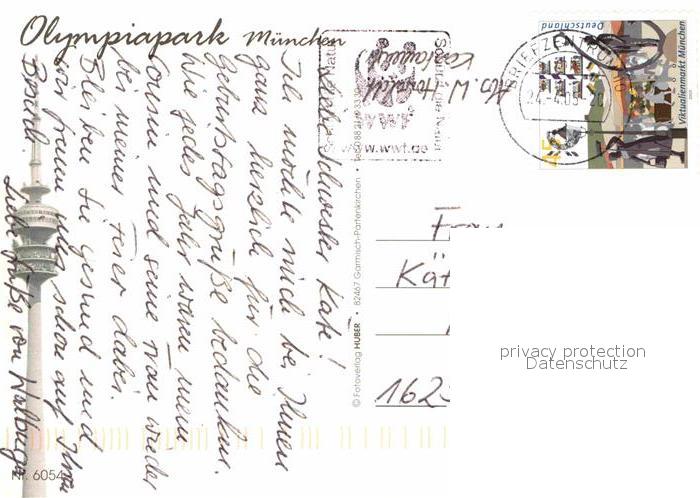 Olympiapark München
Liebe Schwester Käte!
Ich möchte mich bei Ihnen
ganz herzlich für die
Geburtstagsgrüße bedanken.
Wie jedes Jahr waren mein
und seine Frau wieder
bei meiner Feier dabei.
Bleiben Sie gesund und
wir freuen uns schon auf Ihren
Besuch.
Liebe Grüße von Walburga
Nr. 6054
© Fotoverlag HUBER • 82467 Garmisch-Partenkirchen • Tel. 0 88 21/9 33 90
Abs. W.
WWF
www.wwf.de
BRIEFZENTRUM
Deutschland
Viktualienmarkt München
45
Frau
Kät
162
privacy protection
Datenschutz